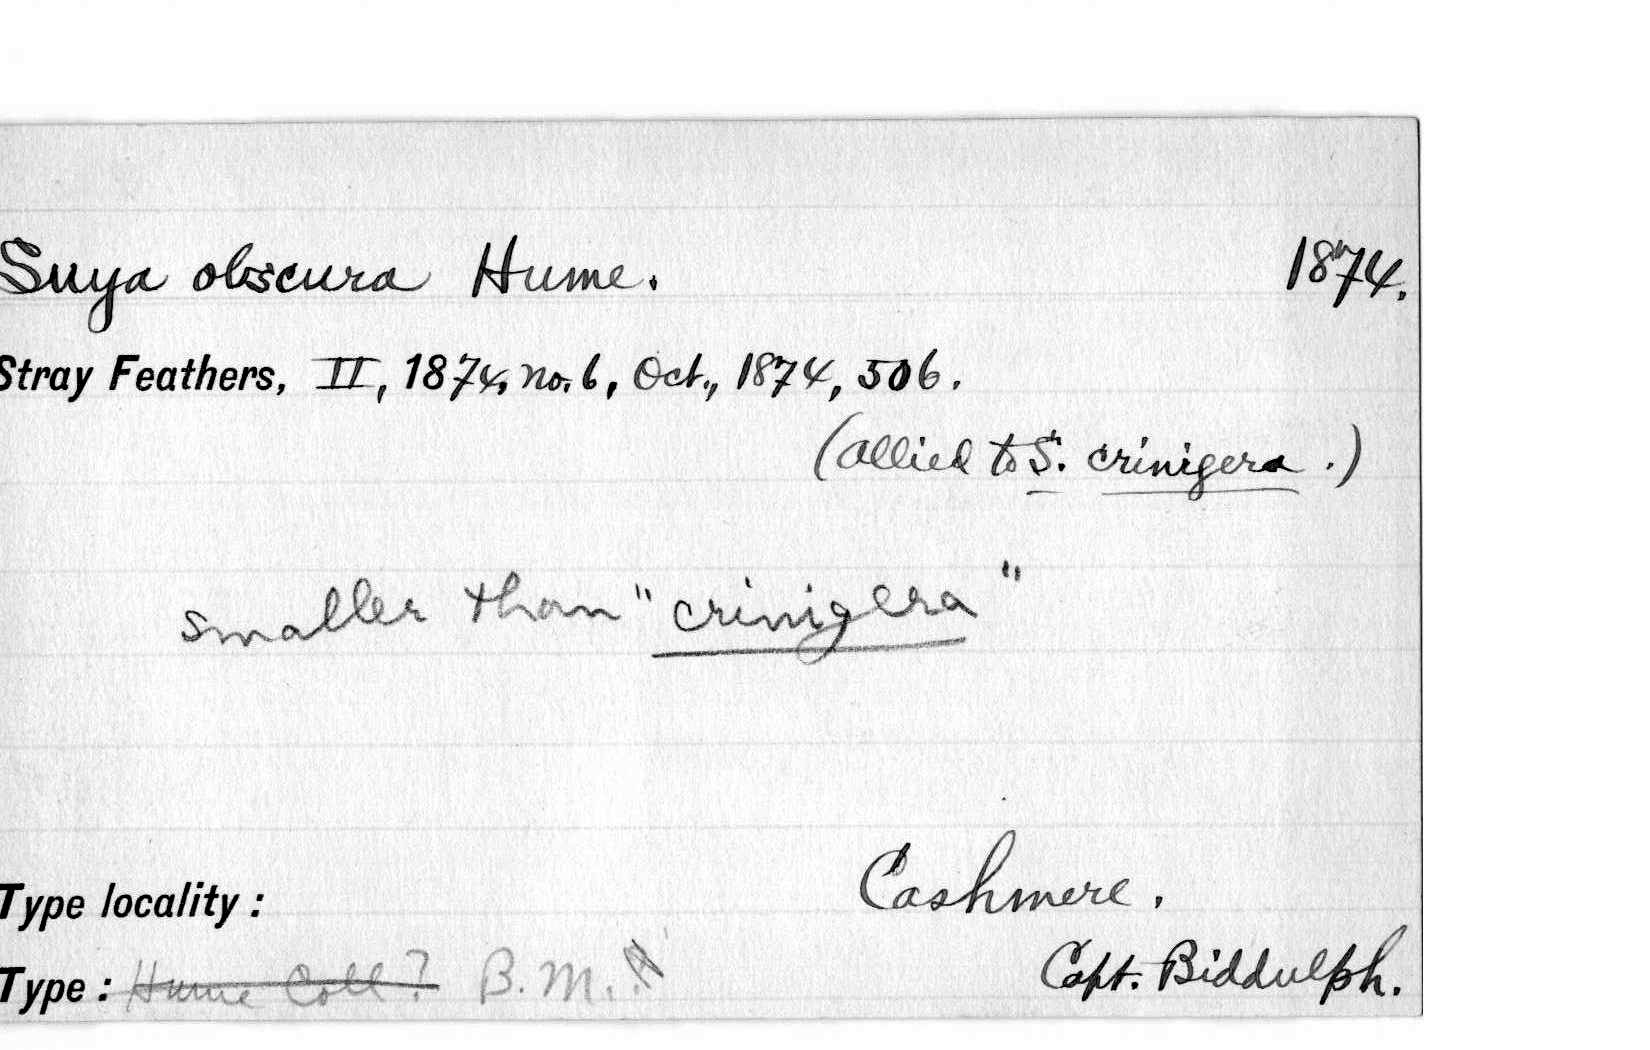 Suya obscura Hume. 1874.
Stray Feathers, II, 1874, no. 6, Oct., 1874, 506.
(allied to S. crinigera.)
smaller than "crinigera"
Cashmere.
Type locality:
Capt. Biddulph.
Type: Hume Coll? B.M.